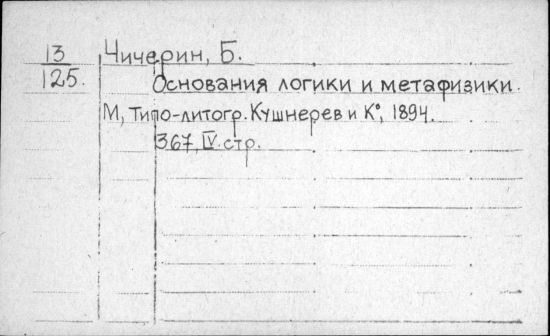 13
125.
Чичерин, Б.
Основания логики и метафизики.
М, Типо-литогр. Кушнерев и К°, 1894.
367, IV. стр.